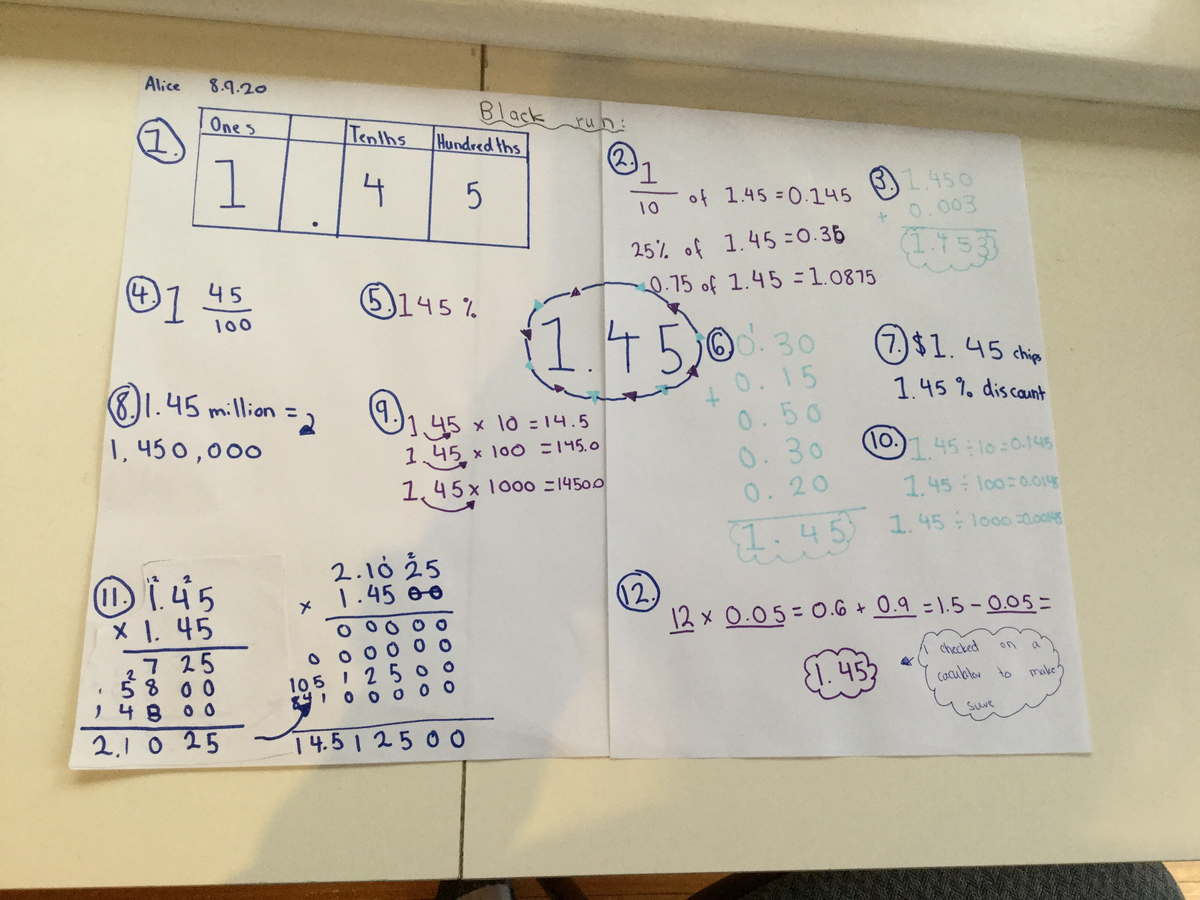 Alice 8.9.20
Black run:
1.
Ones . Tenths Hundredths
1 . 4 5
2.
1/10 of 1.45 = 0.145
25% of 1.45 = 0.36
0.75 of 1.45 = 1.0875
3. 1.450
+ 0.003
1.453
4. 1 45/100
5. 145%
1.45
6. 0.30
+ 0.15
0.50
0.30
0.20
1.45
7. $1.45 chips
1.45% discount
8. 1.45 million =
1,450,000
9. 1.45 x 10 = 14.5
1.45 x 100 = 145.0
1.45 x 1000 = 1450.0
10. 1.45 ÷ 10 = 0.145
1.45 ÷ 100 = 0.0145
1.45 ÷ 1000 = 0.00145
11. 1.45
x 1.45
7 25
5 8 00
1 4 5 00
2.1025
2.1025
x 1.4500
00000
000000
105 12500
841 00000
14.512500
12.
12 x 0.05 = 0.6 + 0.9 = 1.5 - 0.05 =
1.45
I checked on a
caculator to make
sure